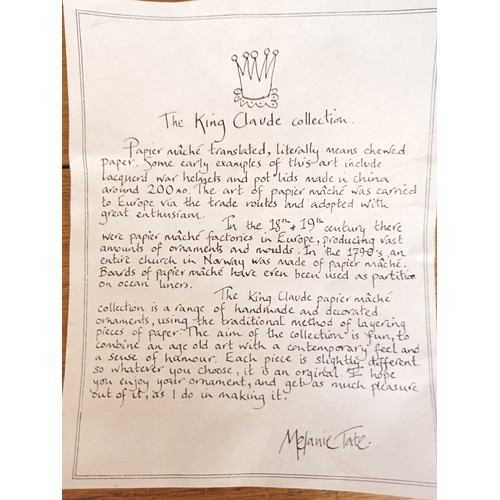 The King Claude collection.
Papier mâché translated, literally means chewed
paper. Some early examples of this art include
Lacquerd war helmets and pot lids made in china
around 200 AD. The art of papier mâché was carried
to Europe via the trade routes and adopted with
great enthusiasm.
In the 18th & 19th century there
were papier mâché factories in Europe, producing vast
amounts of ornaments and moulds. In the 1790's an
entire church in Norway was made of papier mâché.
Boards of papier mâché have even been used as partition
on ocean liners.
The King Claude papier mâché
collection is a range of handmade and decorated
ornaments, using the traditional method of layering
pieces of paper. The aim of the collection is fun, to
combine an age old art with a contemporary feel and
a sense of humour. Each piece is slightly different
so whatever you choose, it is an orginal. I hope
you enjoy your ornament, and get as much pleasure
out of it, as I do in making it.
Melanie Tate.